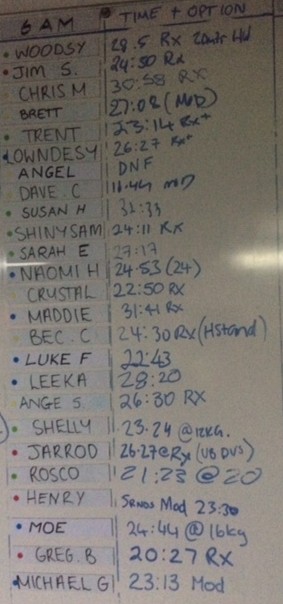 6 AM TIME + OPTION
WOODSY 28.5 Rx
JIM S. 24:50 Rx
CHRIS M 30:58 RX
BRETT 27:08 (MOD)
TRENT 23:14 Rx+
LOWNDESY 26:27 Rx+
ANGEL DNF
DAVE.C 16.44 MOD
SUSAN H 32:33
SHINY SAM 24:11 RX
SARAH E 27:17
NAOMI H 24.53 (24)
CRYSTAL 22:50 RX
MADDIE 31:41 RX
BEC.C 24:30 RX (HStand)
LUKE F 22:43
LEEKA 28:20
ANGE S. 26:30 RX
SHELLY 23.24 @12KG.
JARROD 26.27@Rx (UB DUS)
ROSCO 21:23 @20
HENRY 5RNDS Mod 23:30
MOE 24:44 @ 16kg
GREG.B 20:27 RX
MICHAEL G 23:13 Mod